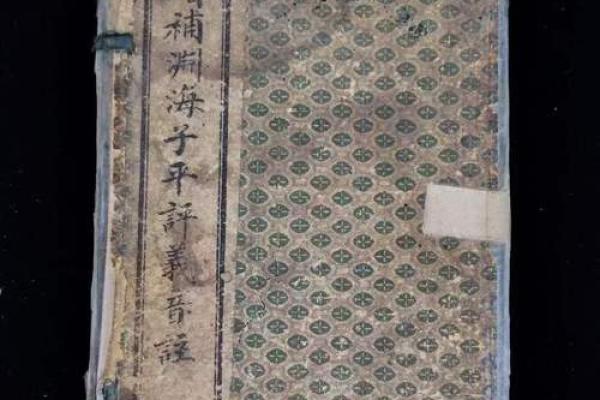 補淵海子平評義音註